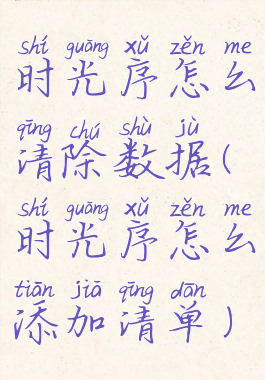 shí guāng xǔ zěn me
时光序怎么
qīng chú shù jù
清除数据(
shí guāng xǔ zěn me
时光序怎么
tiān jiā qīng dān
添加清单)